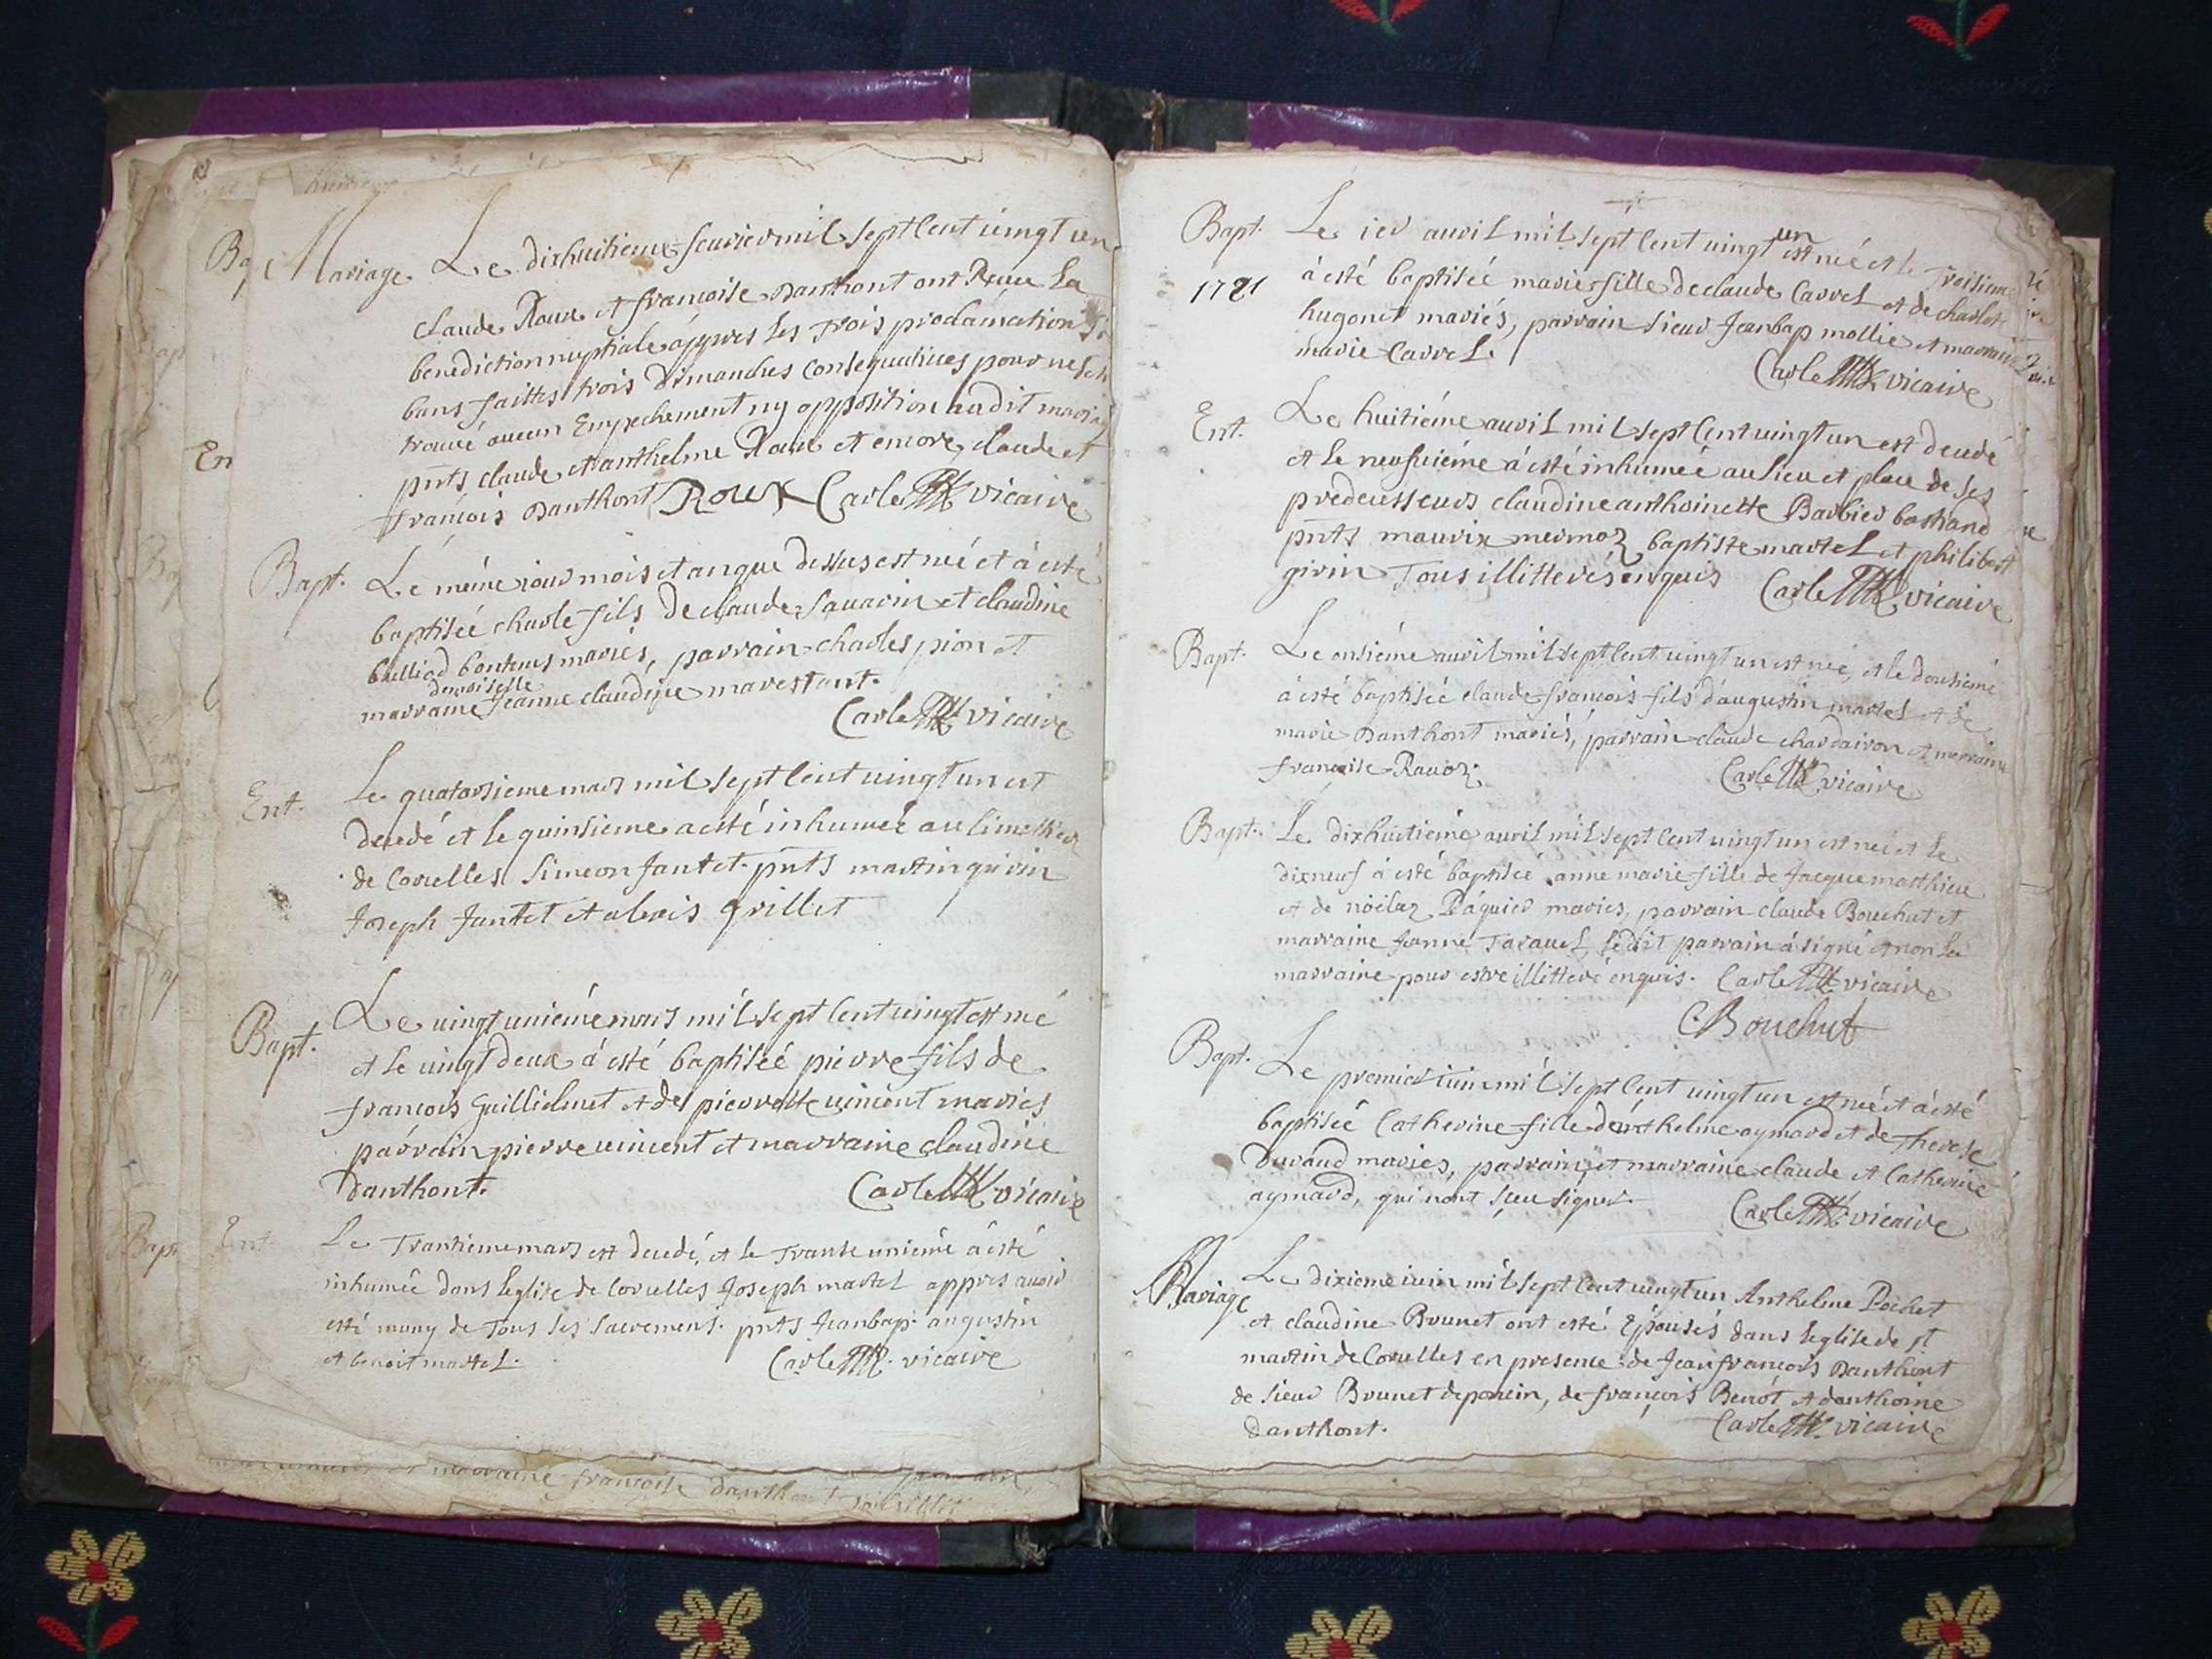 Mariage. Le dixhuitieme feurier mil sept Cent uingt un
Claude Roux et francoise Danthont ont Receu La
benediction nuptiale áppres les Trois proclámations
bans faittes trois Dimanches Consequutiues pour
trouué aucun Empechement ny opposition audit
pnts claude et anthelme Roux et encore, claude et
francois Danthont Roux Carle vicaire
Bapt. Le méme iour mois et an que dessus est néé et à esté
baptiséé charle fils De claude Sauarin et claudine
mariés, parrain charles pion et
demoiselle
marraine Jeanne claudine marestant.
Carle vicaire
Ent. Le quatorsieme mars mil sept Cent uingt un est
decedé et le quinsieme a esté inhumée au Simetier
de Coruelles Simeon Jantet. pnts martin guirin
Joseph Jantet et alexis grillet
Bapt. Le uingt uniéme mars míl sept Cent uingt est né
et le uingt deux á esté baptiséé pierre fils de
francois Guilliclmet et de pierrette uincent mariés
parrain pierre uincent et marraine claudine
Danthont. Carle vicaire
Ent. Le Trantieme mars est decedé, et le Trante uniéme á esté
inhumée dans leglise de Coruelles Joseph martel appres auoir
esté muny de Tous ses Sacremens. pnts Jeanbap. augustin
et benoit martel. Carle vicaire
marraine francoise danthont
Bapt. Le ier auril míl sept Cent uingt un est néé et le Troisieme
1721 á esté baptiséé marie fille de claude Carrel et de
hugonet mariés, parrain Sieur Jeanbap mollie et marraine
marie Carrel.
Carle vicaire
Ent. Le huitiéme auril mil sept Cent uingt un est decedé
et le neufuiéme á esté inhumeé au lieu et place de ses
predecesseurs claudine anthoinette Barbier
pnts maurix mermoz baptiste martel et philibert
girin Tous illitteres enquis Carle vicaire
Bapt. Le onsiéme auril mil sept Cent uingt un est née, et le dousiéme
á esté baptiséé claude francois fils d'augustin martel et de
marie Danthont mariés, parrain claude chardairon et marraine
francoise Rauoz. Carle vicaire
Bapt. Le dixhuitiéme auril míl sept Cent uingt un est néé et le
dixneuf á esté baptiséé anne marie fille de Jacque matthieu
et de nöelaz Páquier mariés, parrain claude Bouchut et
marraine Jeanne Tarauel, ledit parrain á signé et non la
marraine pour estre illitteré enquis. Carle vicaire
C. Bouchut
Bapt. Le premier iuin míl Sept Cent uingt un est néé et á esté
baptiséé Catherine fille d'anthelme aymard et de Therese
Durand mariés, parrain, et marraine claude et Catherine
aymard, qui nont Sceu signer.
Carle vicaire
Mariage Le dixieme iuin míl Sept Cent uingt un Anthelme Pochet
et claudine Brunet ont esté Epousés dans leglise de st
martin de Coruelles en presence de Jean francois Danthont
de Sieur Brunet de poncin, de francois Benót et danthoine
Danthont. Carle vicaire